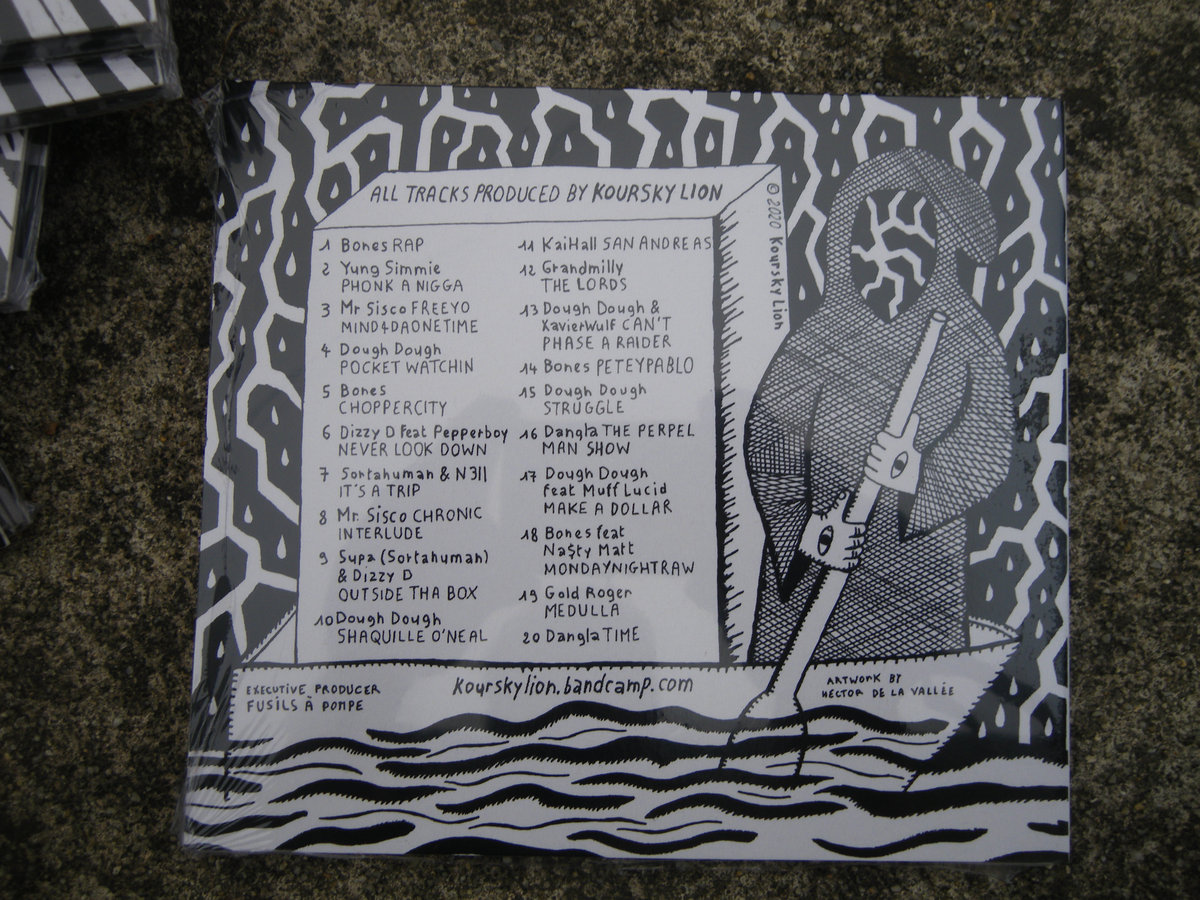 ALL TRACKS PRODUCED BY KOURSKY LION
1 Bones RAP
2 Yung Simmie
PHONK A NIGGA
3 Mr Sisco FREEYO
MIND4DAONETIME
4 Dough Dough
POCKET WATCHIN
5 Bones
CHOPPERCITY
6 Dizzy D Feat Pepperboy
NEVER LOOK DOWN
7 Sortahuman & N3ll
IT'S A TRIP
8 Mr. Sisco CHRONIC
INTERLUDE
9 Supa (Sortahuman)
& Dizzy D
OUTSIDE THA BOX
10 Dough Dough
SHAQUILLE O'NEAL
11 KaiHall SAN ANDREAS
12 Grandmilly
THE LORDS
13 Dough Dough &
XavierWulf CAN'T
PHASE A RAIDER
14 Bones PETEYPABLO
15 Dough Dough
STRUGGLE
16 Dangla THE PERPEL
MAN SHOW
17 Dough Dough
feat Muff Lucid
MAKE A DOLLAR
18 Bones feat
Na$ty Matt
MONDAYNIGHTRAW
19 Gold Roger
MEDULLA
20 Dangla TIME
© 2020 Koursky Lion
EXECUTIVE PRODUCER
FUSILS À POMPE
kourskylion.bandcamp.com
ARTWORK BY
HECTOR DE LA VALLÉE